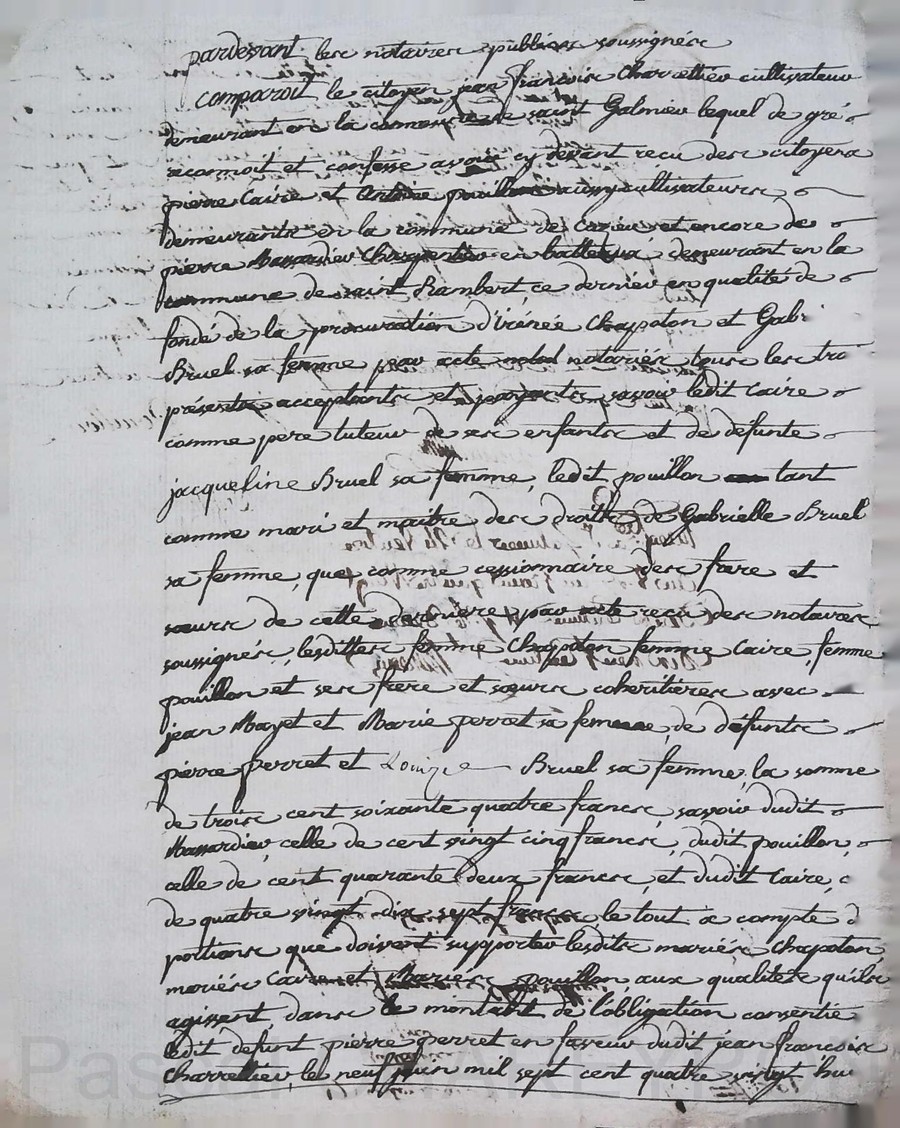 pardevant les notaires publics soussignés
comparoit le citoyen jean francois Charretiier cultivateur
demeurant en la commune de saint Galmier lequel de gré
reconnoit et confesse avoir cy devant recu des citoyens
pierre Caire et Antoine pouillon aussy cultivateurs,
demeurants en la commune de et encore de
pierre Massardier Charpentier en batteaux demeurant en la
commune de saint Rambert, ce dernier en qualité de
fondé de la procuration d'irénée Chapoton et Gabri
Bruel sa femme par acte notariés tous les tro
présents acceptants et payants, savoir ledit Caire
comme pere tuteur de ses enfants et de défunte
jacqueline Bruel sa femme, ledit pouillon tant
comme mari et maitre des droits de Gabrielle Bruel
sa femme, que comme cessionnaire des frere et
sœurs de cette derniere par acte recu des notaires
soussignés, lesdittes femme Chapoton femme Caire, femme
pouillon et ses frere et sœurs coheritieres avec
jean Mayet et Marie perret sa femme de défunts
pierre perret et Louize Bruel sa femme, la somme
de trois cent soixante quatre francs, savoir dudit
Massardier celle de cent vingt cinq francs, dudit pouillon,
celle de cent quarante deux francs, et dudit Caire, c
de quatre vingt dix sept francs le tout a compte d
potions que doivent supporter lesdits mariés Chapoton,
mariés Caire et Mariés pouillon aux qualités qu'ils
agissent, dans le montant de l'obligation consentie
ledit defunt pierre perret en faveur dudit jean francois
Charretiier, le neuf juin mil sept cent quatre vingt hui